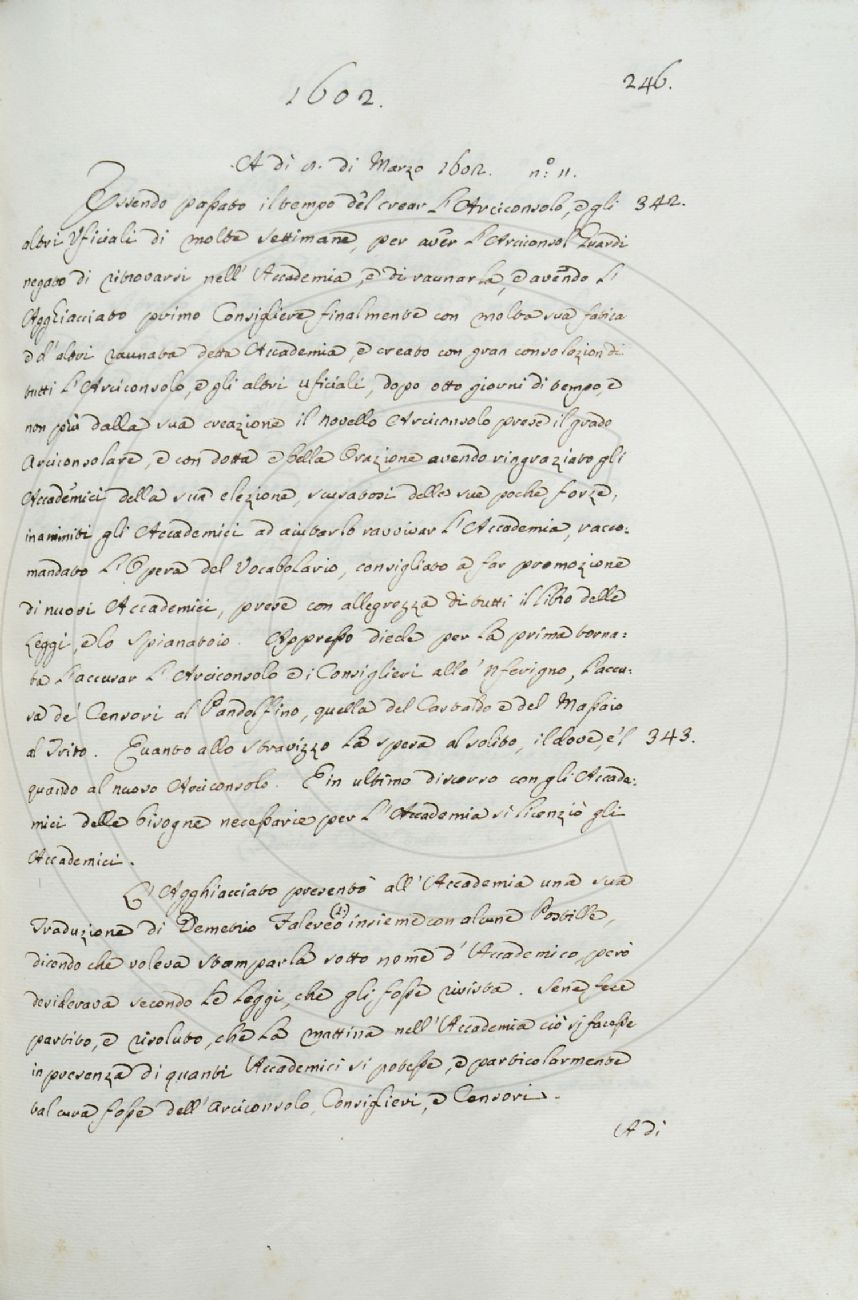 246.
1602.
A dì 9. di Marzo 1602. n.° 11.
Essendo passato il tempo del crear l'Arciconsolo, e gli 342.
altri Uficiali di molte settimane, per aver l'Arciconsol Guardi
negato di ritrovarsi nell'Accademia, e di raunarla, e avendo l'
Agghiacciato primo Consigliere finalmente con molta sua fatica
e d'altri raunata detta Accademia, e creato con gran consolazion di
tutti l'Arciconsolo, e gli altri uficiali, dopo otto giorni di tempo, e
non più dalla sua creazione il novello Arciconsolo prese il grado
Arciconsolare, e con dotta e bella Orazione avendo ringraziato gli
Accademici della sua elezione, scusatosi delle sue poche forze,
inanimiti gli Accademici ad aiutarlo ravvivar l'Accademia, racco:
mandato l'Opera del Vocabolario, consigliato a far promozione
di nuovi Accademici, prese con allegrezza di tutti il libro delle
Leggi, e lo spianatoio. Appresso diede per la prima torna:
ta l'accusar l'Arciconsolo e i Consiglieri allo 'Nferigno, l'accu:
sa de' Censori al Pandolfino, quella del Castaldo e del Massaio
al Trito. Quanto allo stravizzo la spesa al solito, il dove, e 'l 343.
quando al nuovo Arciconsolo. E in ultimo discorso con gli Accade:
mici delle bisogne necessarie per l'Accademia si licenziò gli
Accademici.
L'Agghiacciato presentò all'Accademia una sua
Traduzione di Demetrio Falereo (1) insieme con alcune Postille,
dicendo che voleva stamparla sotto nome d'Accademico, però
desiderava secondo le Leggi, che gli fosse rivista. Sene fece
partito, e risoluto, che la mattina nell'Accademia ciò si facesse
in presenza di quanti Accademici si potesse, e particolarmente
tal cura fosse dell'Arciconsolo, Consiglieri, e Censori.
A di